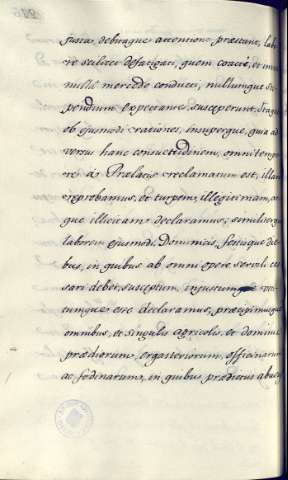 justa, debitaque attentione præstant, labo-
re scilicet defatigati, quem coacti, et in
nulla mercede conducti, nullumque sti-
pendium expectantes susceperunt. Itaque
ob ejusmodi rationes, insuperque, quia ad
versus hanc consuetudinem, omni tempo
re à Prælatis reclamatum est, illam
reprobamus, et turpem, illegitimam, at
que illicitam declaramus; similiterque
laborem ejusmodi Dominicis, festisque die
bus, in quibus ab omni opere servili ces
sari debet, susceptum, injustumque, veti
tumque esse declaramus, præcipimusque
omnibus, et singulis agricolis, et dominis
prædiorum, ergasteriorum, officinarum
ac fodinarum, in quibus prædictus abusus